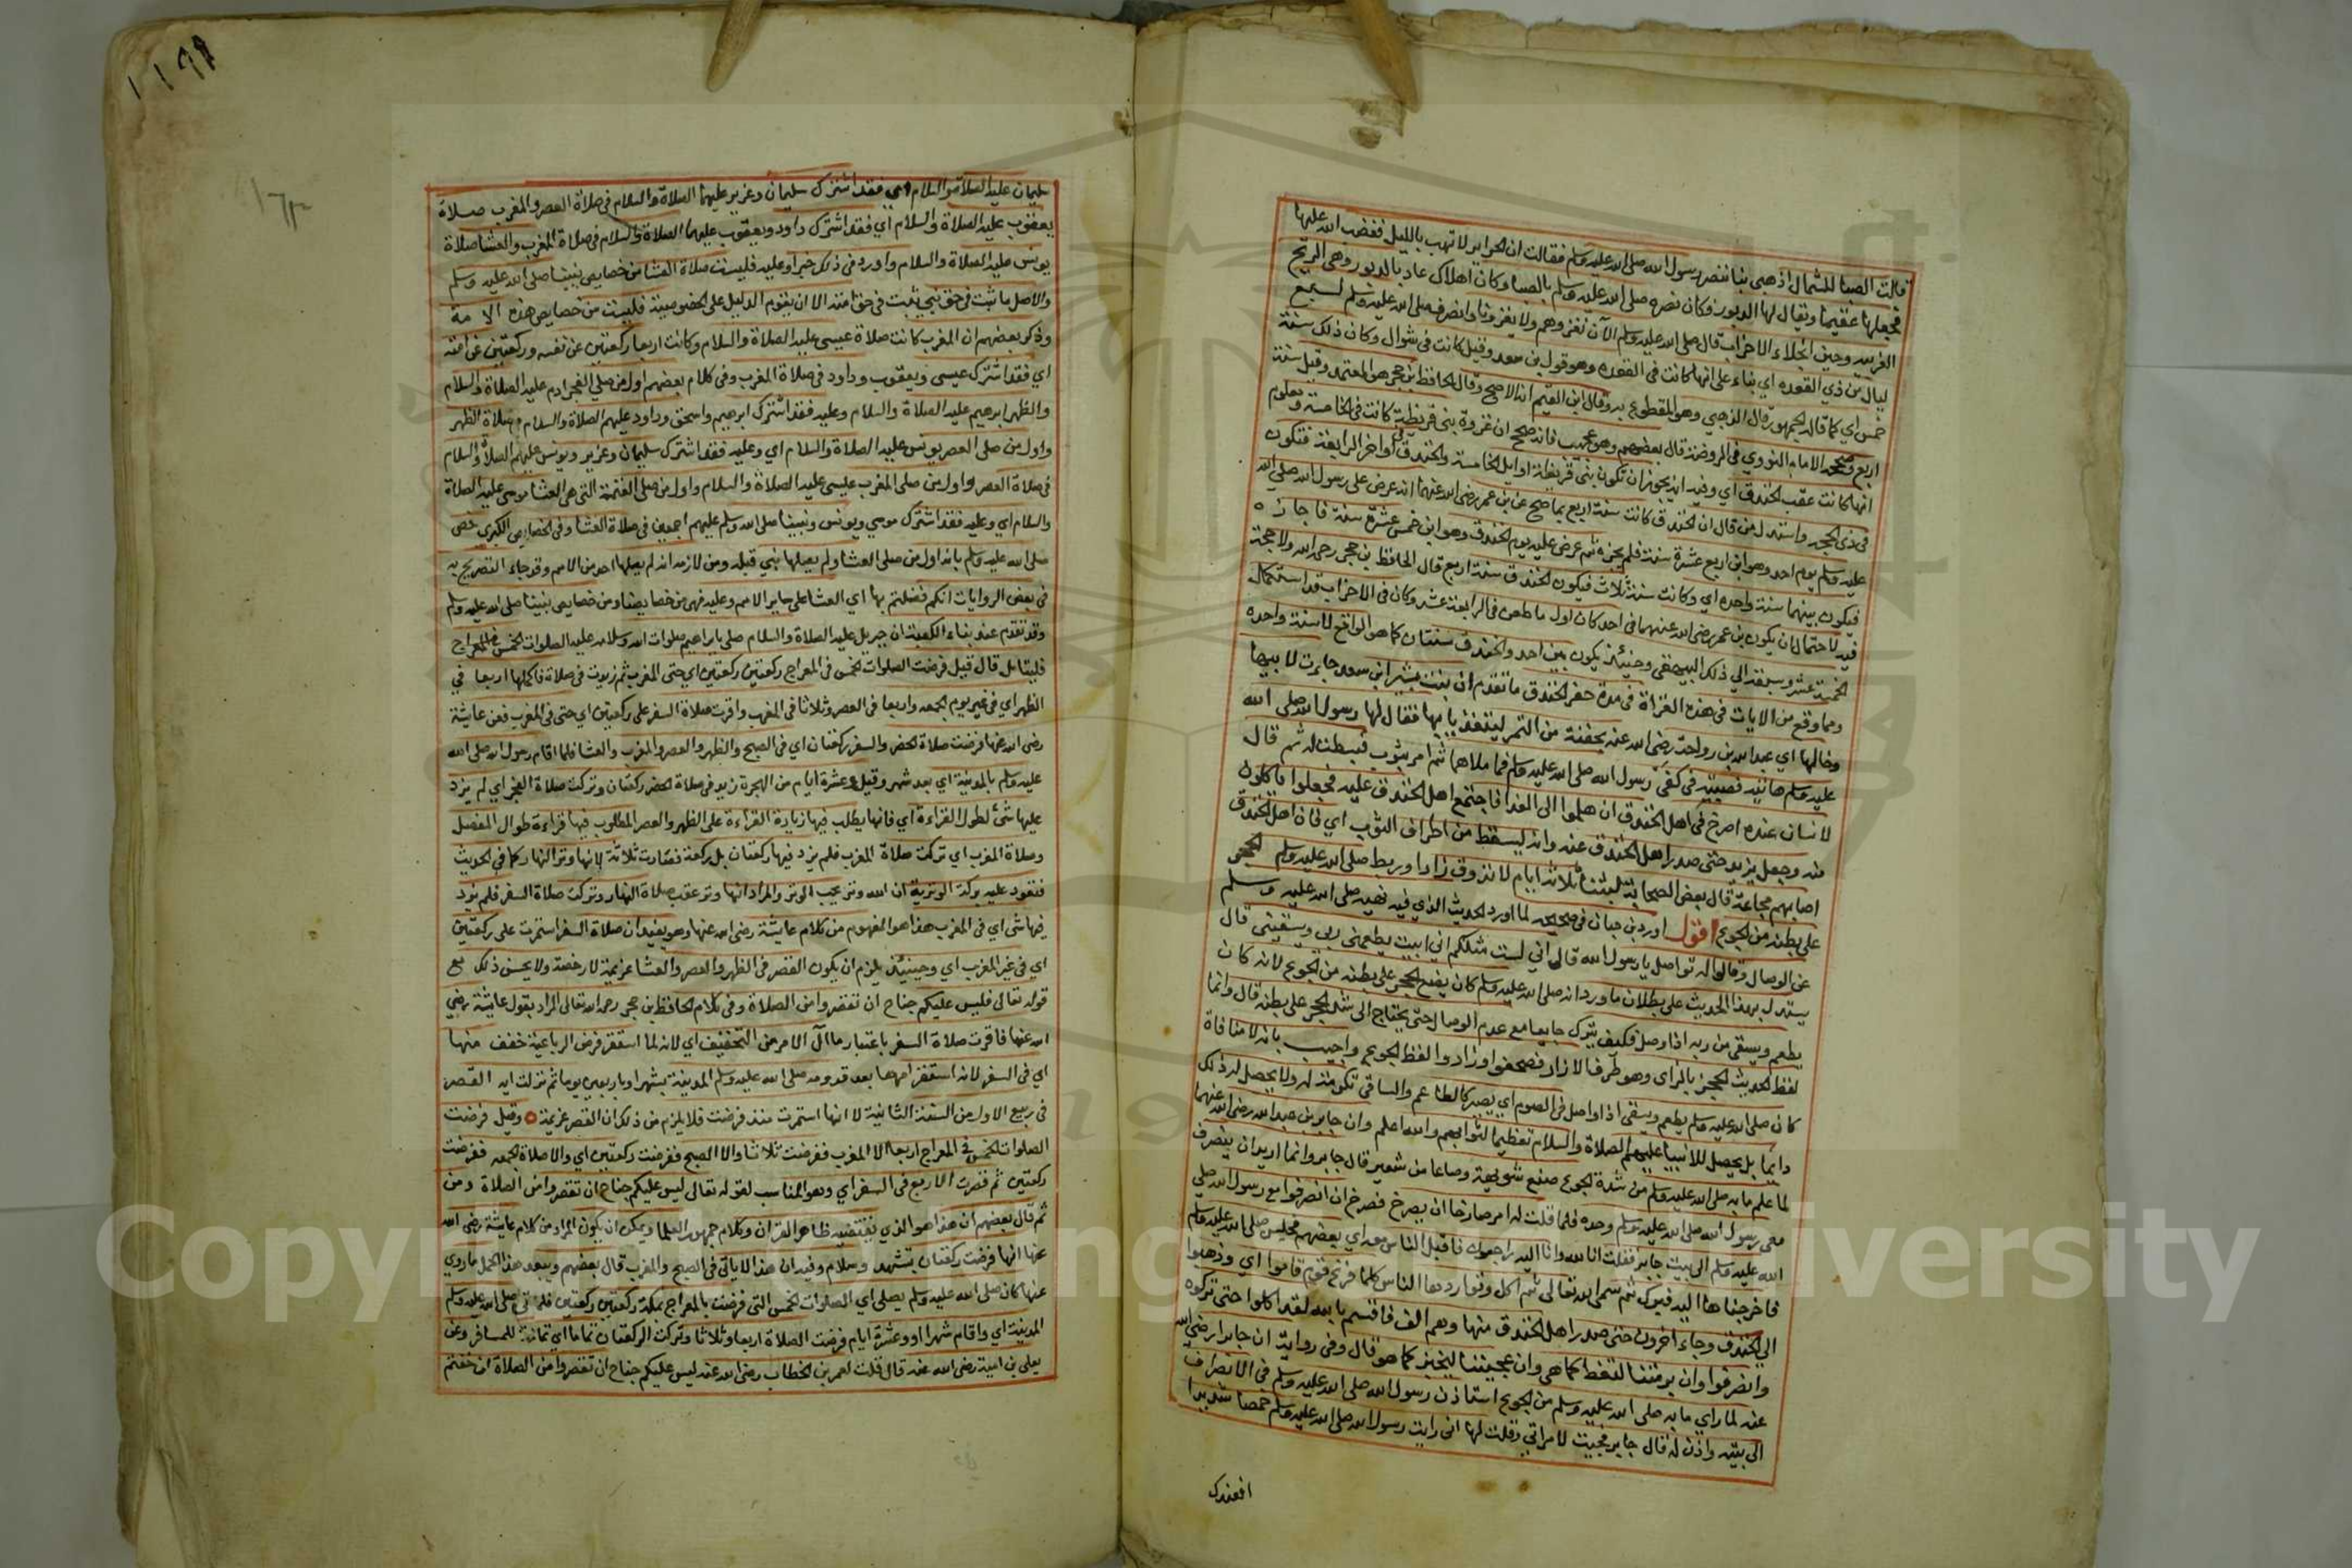 قالت الصبا للشمال اذهبي بنا ننصر رسول الله صلى الله عليه وسلم فقالت ان الحراير لا تهب بالليل فغضب الله عليها
فجعلها عقيما ويقال لها الدبور فكان نصره صلى الله عليه وسلم بالصبا وكان اهلاك عاد بالدبور وهي الريح
الغربيه وحين انجلاء الاحزاب قال صلى الله عليه وسلم الآن نغزوهم ولا يغزونا وانصرف صلى الله عليه وسلم لسبع
ليال من ذي القعده اي بناء على انها كانت في القعده وهو قول بن سعد وقيل كانت في شوال وكان ذلك سنة
خمس اي كما قاله الجمهور قال الذهبي وهو المقطوع به وقال ابن القيم انه الاصح وقال الحافظ ابن حجر هو المعتمد وقيل سنة
اربع وصححه الامام النووي في الروضة قال بعضهم وهو عجيب فانه صحح ان غزوة بني قريظة كانت في الخامسة ومعلوم
انها كانت عقب الخندق اي وفيه انه يجوز ان تكون بني قريظة اوايل الخامسة والخندق اواخر الرابعة فتكون
في ذي الحجه واستدل من قال ان الخندق كانت سنة اربع بما صح عن بن عمر رضي الله عنهما انه عرض على رسول الله صلى الله
عليه وسلم يوم احد وهو ابن اربع عشرة سنة فلم يجزه ثم عرض عليه يوم الخندق وهو ابن خمس عشرة سنة فاجازه
فيكون بينهما سنة واحده اي وكانت سنة ثلاث فيكون الخندق سنة اربع قال الحافظ بن حجر رحمه الله ولا حجة
فيه لاحتمال ان يكون بن عمر رضي الله عنهما في احد كان اول ما طعن في الرابعة عشر وكان في الاحزاب قد استكمل
الخمسة عشر وسبقه الي ذلك البيهقي وحينئذ يكون بين احد والخندق سنتان كما هو الواقع لا سنة واحده
ومما وقع من الايات في هذه الغزاة في مدة حفر الخندق ما تقدم ان بنت بشير ابن سعد جاءت لابيها
وخالها اي عبد الله بن رواحة رضي الله عنه بحفنة من التمر ليتغذيا بها فقال لها رسول الله صلى الله
عليه وسلم هاتيه فصبته في كفي رسول الله صلى الله عليه وسلم فما ملاهما ثم امر بثوب فبسطت له ثم قال
لانسان عنده اصرخ في اهل الخندق ان هلموا الى الغدا فاجتمع اهل الخندق عليه فجعلوا ياكلون
منه وجعل يزيد حتى صدر اهل الخندق عنه وانه ليسقط من اطراف الثوب اي فان اهل الخندق
اصابهم مجاعة قال بعض الصحابة لبثنا ثلاثة ايام لا نذوق زادا وربط صلى الله عليه وسلم الحجر
على بطنه من الجوع اقول اورد بن حبان في صحيحه لما اورد الحديث الذي فيه نهيه صلى الله عليه وسلم
عن الوصال وقالوا له تواصل يا رسول الله قال اني لست مثلكم اني ابيت يطعمني ربي ويسقيني قال
يستدل بهذا الحديث على بطلان ما ورد انه صلى الله عليه وسلم كان يضع الحجر على بطنه من الجوع لانه كان
يطعم ويسقى من ربه اذا وصل فكيف يترك جايعا مع عدم الوصال حتى يحتاج الى شد الحجر على بطنه قال وانما
لفظ الحديث الحجز بالزاي وهو طرف الازار فصحفوا وزادوا لفظ الجوع واجيب بانه لا منافاة
كان صلى الله عليه وسلم يطعم ويسقى اذا واصل في الصوم اي يصير كالطاعم والساقي تكرمة له ولا يحصل له ذلك
دايما بل يحصل للانبيا عليهم الصلاة والسلام تعظيما لثوابهم والله اعلم وان جابر بن عبد الله رضي الله عنهما
لما علم ما به صلى الله عليه وسلم من شدة الجوع صنع شويهة وصاعا من شعير قال جابر وانما اريد ان ينصرف
معي رسول الله صلى الله عليه وسلم وحده فلما قلت له امر صارخا ان يصرخ فصرخ ان انصرفوا مع رسول الله صلى
الله عليه وسلم الى بيت جابر فقلت انا لله وانا اليه راجعون فاقبل الناس معه اي بعضهم فجلس صلى الله عليه وسلم
فاخرجناها اليه فبرك ثم سمى الله تعالى ثم اكل وتواردها الناس كلما فرغ قوم قاموا اي وذهبوا
الى الخندق وجاء اخرون حتى صدر اهل الخندق منها وهم الف فاقسم بالله لقد اكلوا حتى تركوه
وانصرفوا وان برمتنا لتغط كما هي وان عجيننا ليخبز كما هو قال وفي رواية ان جابرا رضي الله
عنه لما راي ما به صلى الله عليه وسلم من الجوع استاذن رسول الله صلى الله عليه وسلم في الانصراف
الى بيته واذن له قال جابر فجيت لامراتي وقلت لها اني رايت رسول الله صلى الله عليه وسلم خمصا شديدا
افعندك
سليمان عليه الصلاة والسلام اي فقد اشترك سليمان وعزير عليهما الصلاة والسلام في صلاة العصر والمغرب صلاة
يعقوب عليه الصلاة والسلام اي فقد اشترك داود ويعقوب عليهما الصلاة والسلام في صلاة المغرب والعشا صلاة
يونس عليه الصلاة والسلام واورد في ذلك خبرا وعليه فليست صلاة العشا من خصايص نبينا صلى الله عليه وسلم
والاصل ما ثبت في حق نبي يثبت في حق امته الا ان يقوم الدليل على الخصوصية فليست من خصايص هذه الامة
وذكر بعضهم ان المغرب كانت صلاة عيسى عليه الصلاة والسلام وكانت اربعا ركعتين عن نفسه وركعتين عن امه
اي فقد اشترك عيسى ويعقوب وداود في صلاة المغرب وفي كلام بعضهم اول من صلي الفجر ادم عليه الصلاة والسلام
والظهر ابرهيم عليه الصلاة والسلام وعليه فقد اشترك ابرهيم واسحق وداود عليهم الصلاة والسلام في صلاة الظهر
واول من صلى العصر يونس عليه الصلاة والسلام اي وعليه فقد اشترك سليمان وعزير ويونس عليهم الصلاة والسلام
في صلاة العصر واول من صلى المغرب عيسى عليه الصلاة والسلام واول من صلى العتمة التي هي العشا موسى عليه الصلاة
والسلام اي وعليه فقد اشترك موسي ويونس ونبينا صلى الله وسلم عليهم اجمعين في صلاة العشا وفي الخصايص الكبرى خص
صلى الله عليه وسلم بانه اول من صلى العشا ولم يصلها نبي قبله ومن لازمه انه لم يصلها احد من الامم وقد جاء التصريح به
في بعض الروايات انكم فضلتم بها اي العشا على ساير الامم وعليه فهي من خصايصنا ومن خصايص نبينا صلى الله عليه وسلم
وقد تقدم عند بناء الكعبة ان جبريل عليه الصلاة والسلام صلى بابراهيم صلوات الله وسلامه عليه الصلوات الخمس في المعراج
فليتامل قال قيل فرضت الصلوات الخمس في المعراج ركعتين ركعتين اي حتى المغرب ثم زيدت في صلاة فاكملها اربعا في
الظهر اي في غير يوم الجمعه واربعا في العصر وثلاثا في المغرب واقرت صلاة السفر على ركعتين اي حتى في المغرب فعن عايشة
رضي الله عنها فرضت صلاة الحضر والسفر ركعتان اي في الصبح والظهر والعصر والمغرب والعشا فلما اقام رسول الله صلى الله
عليه وسلم بالمدينة اي بعد شهر وقيل وعشرة ايام من الهجرة زيد في صلاة الحضر ركعتان وتركت صلاة الفجر اي لم يزد
عليها شئ لطول القراءة اي فانها يطلب فيها زيادة القراءة على الظهر والعصر المطلوب فيها قراءة طوال المفصل
وصلاة المغرب اي تركت صلاة المغرب فلم يزد فيها ركعتان بل ركعة فصارت ثلاثة لانها وتر النهار كما في الحديث
فتعود عليه بركة الوترية ان الله وتر يحب الوتر والمراد انها وتر عقب صلاة النهار وتركت صلاة السفر فلم يزد
فيها شي اي في المغرب هذا هو المفهوم من كلام عايشة رضي الله عنها وهو يفيد ان صلاة السفر استمرت على ركعتين
اي في غير المغرب اي وحينئذ يلزم ان يكون القصر في الظهر والعصر والعشا عزيمة لا رخصة ولا يحسن ذلك مع
قوله تعالى فليس عليكم جناح ان تقصروا من الصلاة وفي كلام الحافظ بن حجر رحمه الله تعالى المراد بقول عايشة رضي
الله عنها فاقرت صلاة السفر باعتبار ما آل الامر من التخفيف اي لانه لما استقر فرض الرباعية خفف منها
اي في السفر لانه استقر امرها بعد قدومه صلى الله عليه وسلم المدينة بشهر او باربعين يوما ثم نزلت اية القصر
في ربيع الاول من السنة الثانية لا انها استمرت منذ فرضت فلا يلزم من ذلك ان القصر عزيمة ه وقيل فرضت
الصلوات الخمس في المعراج اربعا الا المغرب ففرضت ثلاثا والا الصبح ففرضت ركعتين اي والا صلاة الجمعه ففرضت
ركعتين ثم قصرت الاربع في السفر اي وهو المناسب لقوله تعالى ليس عليكم جناح ان تقصروا من الصلاة ومن
ثم قال بعضهم ان هذا هو الذي يقتضيه ظاهر القران وكلام جمهور العلما ويمكن ان يكون المراد من كلام عايشة رضي الله
عنها انها فرضت ركعتان بتشهد وسلام وفيه ان هذا لا ياتي في الصبح والمغرب قال بعضهم ويبعد هذا الحمل ما روي
عنها كان صلى الله عليه وسلم يصلي اي الصلوات الخمس التي فرضت بالمعراج بمكة ركعتين ركعتين فلما اتى صلى الله عليه وسلم
المدينة اي واقام شهرا او وعشرة ايام فرضت الصلاة اربعا وثلاثا وتركت الركعتان تماما اي تمامة للمسافر وعن
يعلى بن امية رضي الله عنه قال قلت لعمر بن الخطاب رضي الله عنه ليس عليكم جناح ان تقصروا من الصلاة ان خفتم